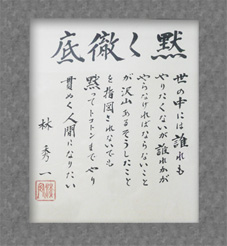 黙く徹底
世の中には誰れも
やりたくないが誰れかが
やらなければならないこと
が沢山あるそうしたこと
を指図されないでも
黙ってトコトンまでやり
貫ぬく人間になりたい
林秀一